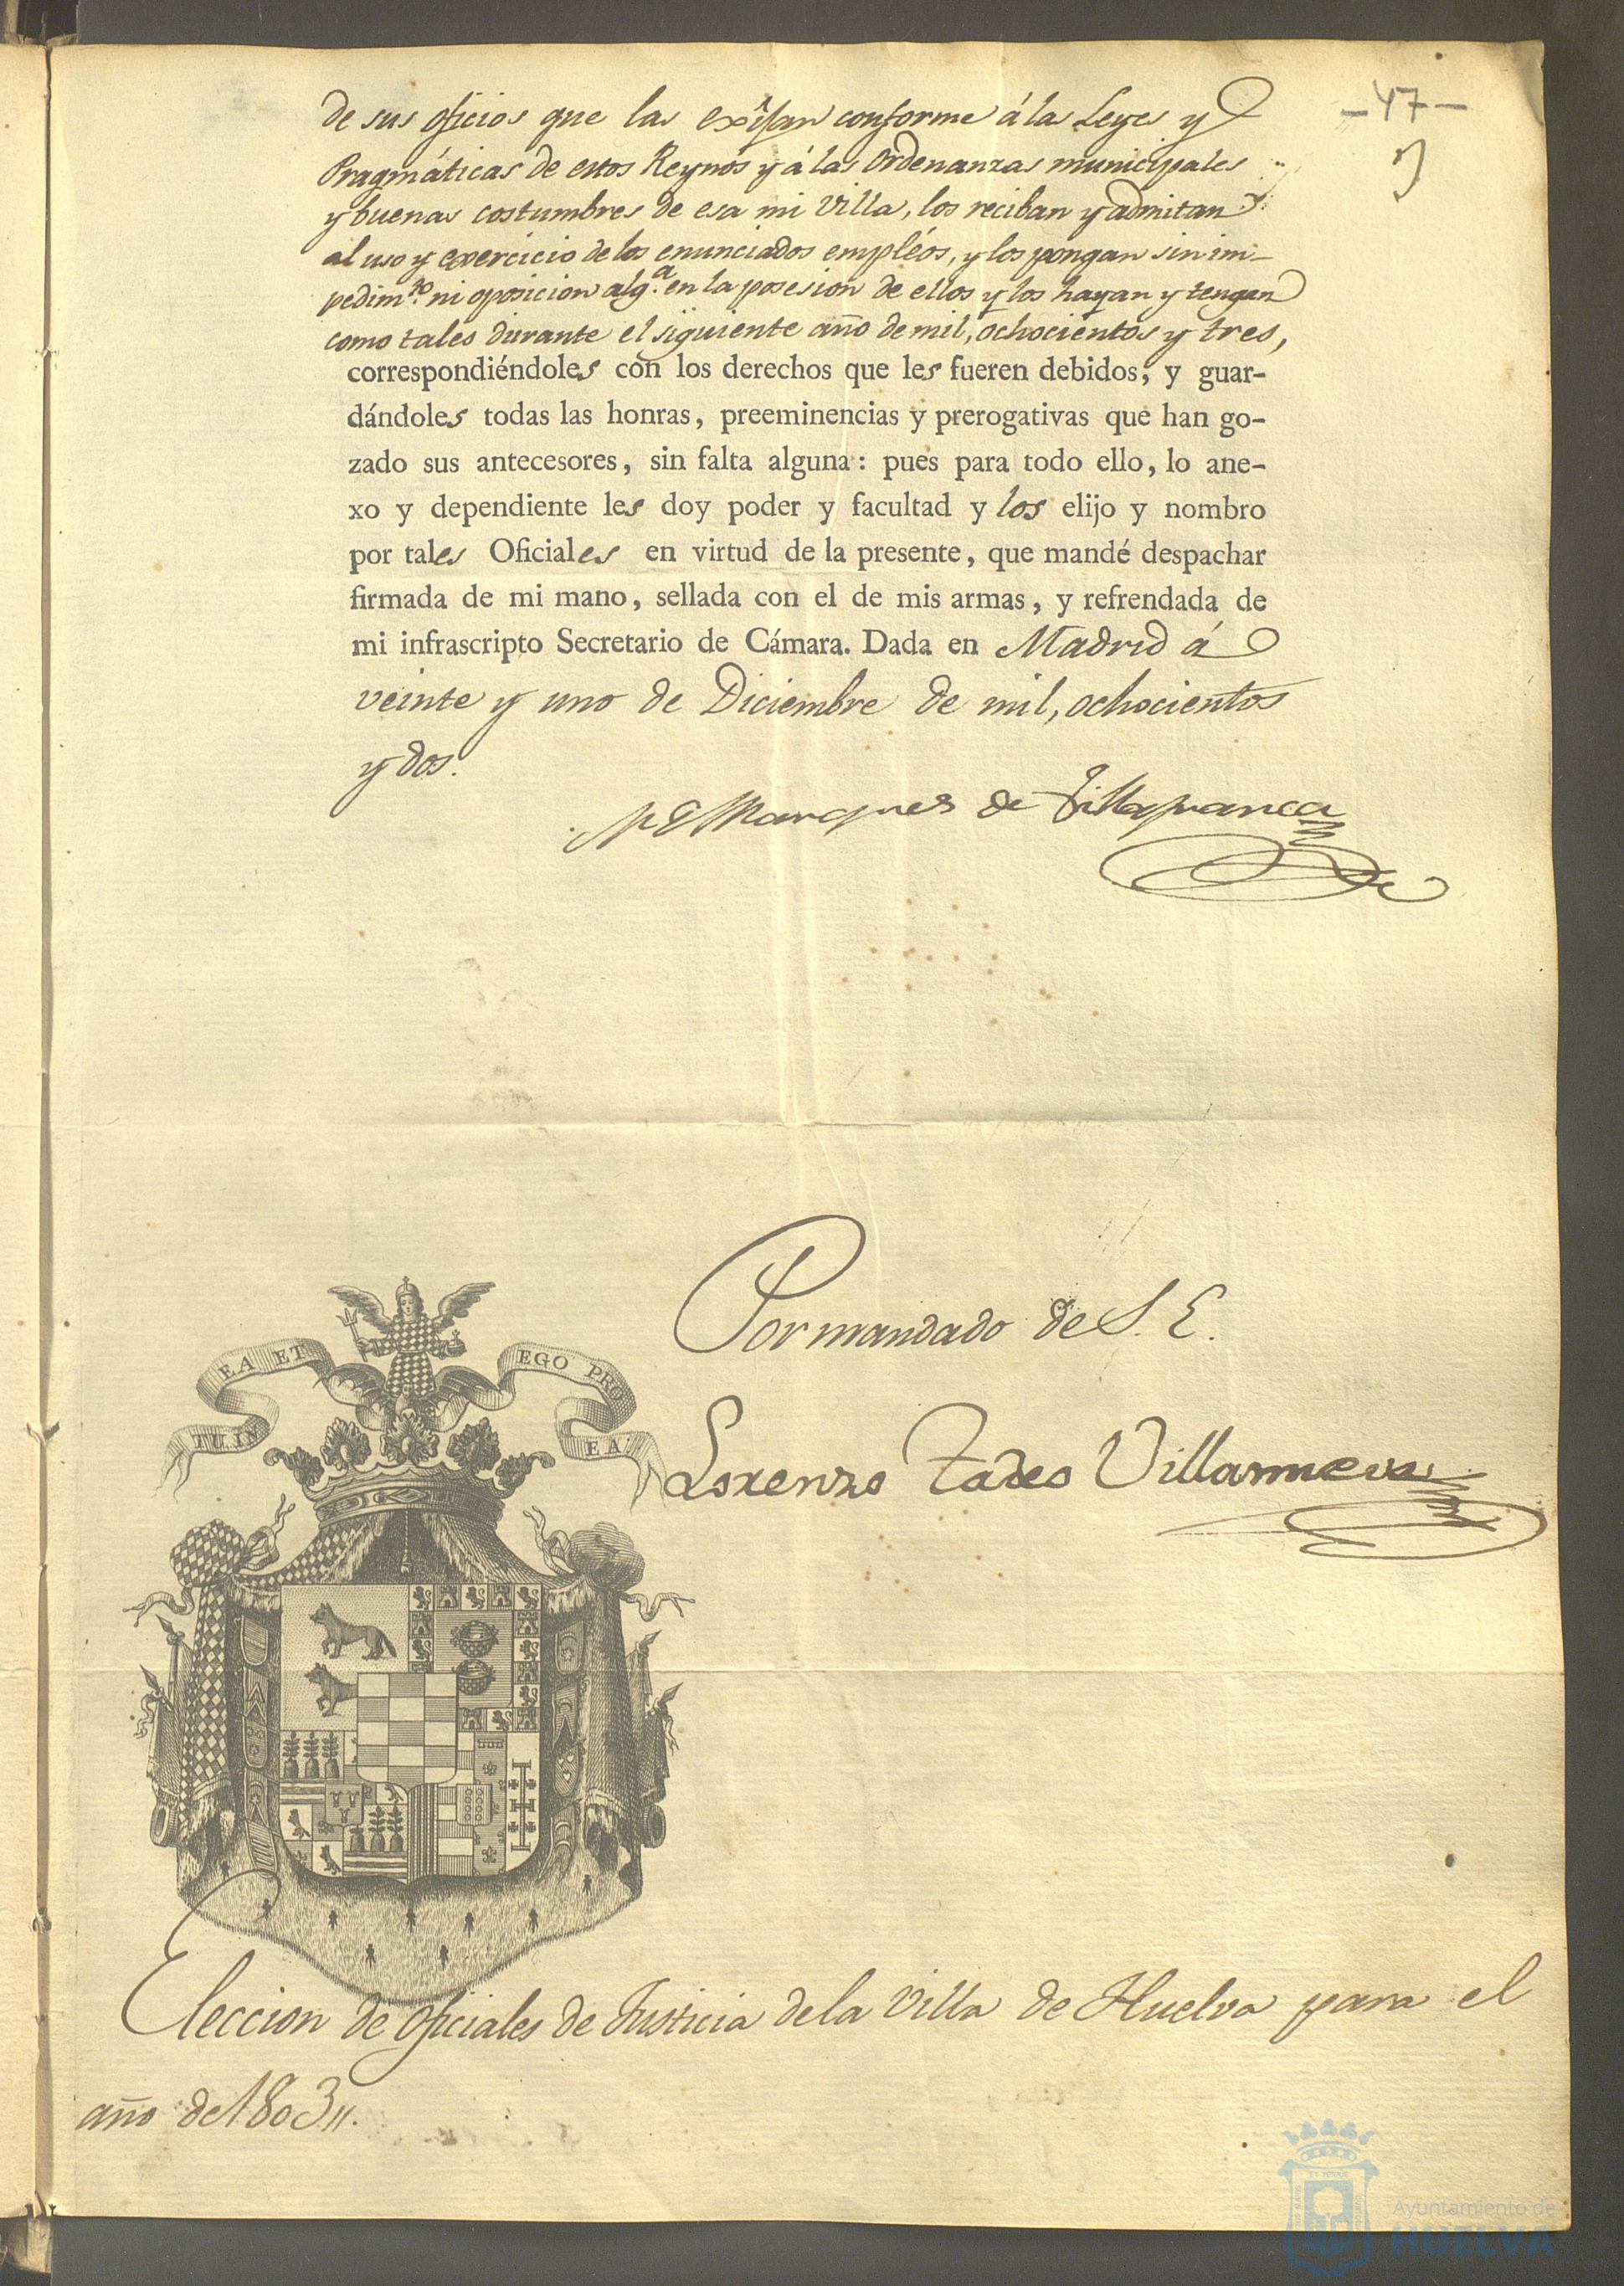 -47-
de sus oficios que las exîjan conforme á la Leyes y
Pragmáticas de estos Reynos y á las Ordenanzas municipales
y buenas costumbres de esa mi Villa, los reciban y admitan
al uso y exercicio de los enunciados empléos, y los pongan sin im-
pedim.to ni oposicion alg.a en la posesion de ellos y los hayan y tengan
como tales durante el siguiente año de mil, ochocientos y tres,
correspondiéndoles con los derechos que les fueren debidos, y guar-
dándoles todas las honras, preeminencias y prerogativas que han go-
zado sus antecesores, sin falta alguna: pues para todo ello, lo ane-
xo y dependiente les doy poder y facultad y los elijo y nombro
por tales Oficiales en virtud de la presente, que mandé despachar
firmada de mi mano, sellada con el de mis armas, y refrendada de
mi infrascripto Secretario de Cámara. Dada en Madrid á
veinte y uno de Diciembre de mil, ochocientos
y dos.
El Marques de Villafranca
Por mandado de S. E.
EA ET EGO PRO
TUIN EA
Lorenzo Tadeo Villanueva
Eleccion de oficiales de Justicia de la Villa de Huelva para el
año de 1803,,.
Ayuntamiento de
HUELVA